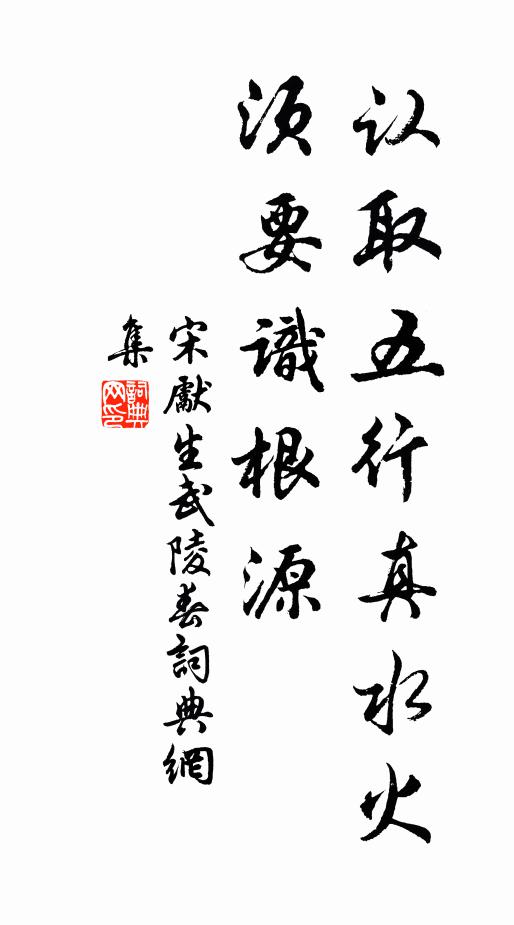 认取五行真水火
须要識根源
宋獻生武陵春詞典網
集
詞典
网印